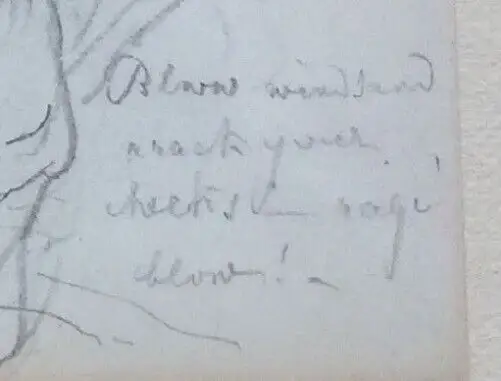 Blow winds and
crack your
cheeks! — rage
blow! –